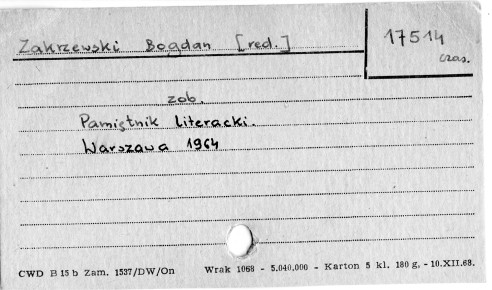 Zakrzewski Bogdan [red.]
17514
czas.
zob.
Pamiętnik literacki.
Warszawa 1964
CWD B 15 b Zam. 1537/DW/On Wrak 1068 - 5.040.000 - Karton 5 kl. 180 g. - 10.XII.68.